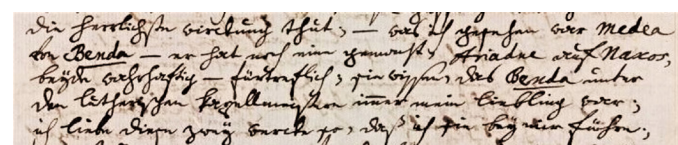 die herrlichste wirckung thut; — was ich gesehen war Medea
von Benda — er hat noch eine gemacht, Ariadne auf Naxos,
beyde wahrhaftig — fürtreflich; sie wissen, das Benda unter
den lutherischen kapellmeistern immer mein liebling war;
ich liebe diese zwey wercke so, daß ich sie bey mir führe;